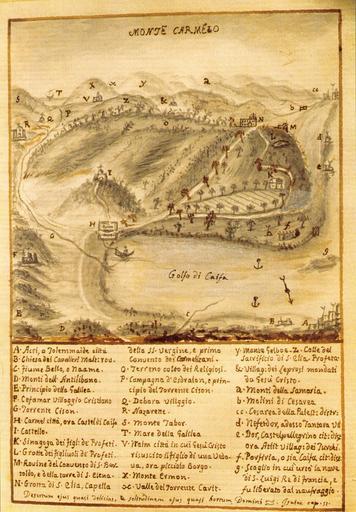 MONTE CARMELO
Golfo di Caifa
A. Acri, o Tolemmaide città
B. Chiesa dei Cavalieri Maltesi.
C. Fiume Bello, o Naame.
D. Monti dell Antilibano.
E. Principio della Galilea.
F. Cafamar Villaggio Cristiano
G. Torrente Cison.
H. Carmel città, ora Castel di Caifa
I. Castello.
K. Sinagoga dei figli de Profeti.
L. Grotte dei figliuoli de Profeti.
M. Rovine del Convento di S. Brocardo, e della torre di S. Elena.
N. Grotta di S. Elia, Capella
della SS. Vergine, e primo
Convento dei Carmelitani.
O. Terreno colto dei Religiosi.
P. Campagna d'Esdrelon, e principio del Torrente Cison.
Q. Debora villaggio.
R. Nazarette.
S. Monte Tabor.
T. Mare della Galilea
V. Naim città in cui Gesù Cristo
risuscitò il figlio di una Vedova, ora piccolo Borgo.
X. Monte Ermon.
x. Valle del Torrente Carit.
y. Monte Gelboe. Z. Colle del
Sacrificio di S. Elia Profeta
&. Villag. dei Leprosi mondati
da Gesù Cristo.
a. Monti della Samaria.
b. Molini di Cesarea
cc. Cesarea della Palest. distr.
f. Porfiria, o sia Caifa cit. dis.
g. Scoglio in cui urtò la nave
di S. Luigi Re di Francia, e
fu liberato dal naufraggio.